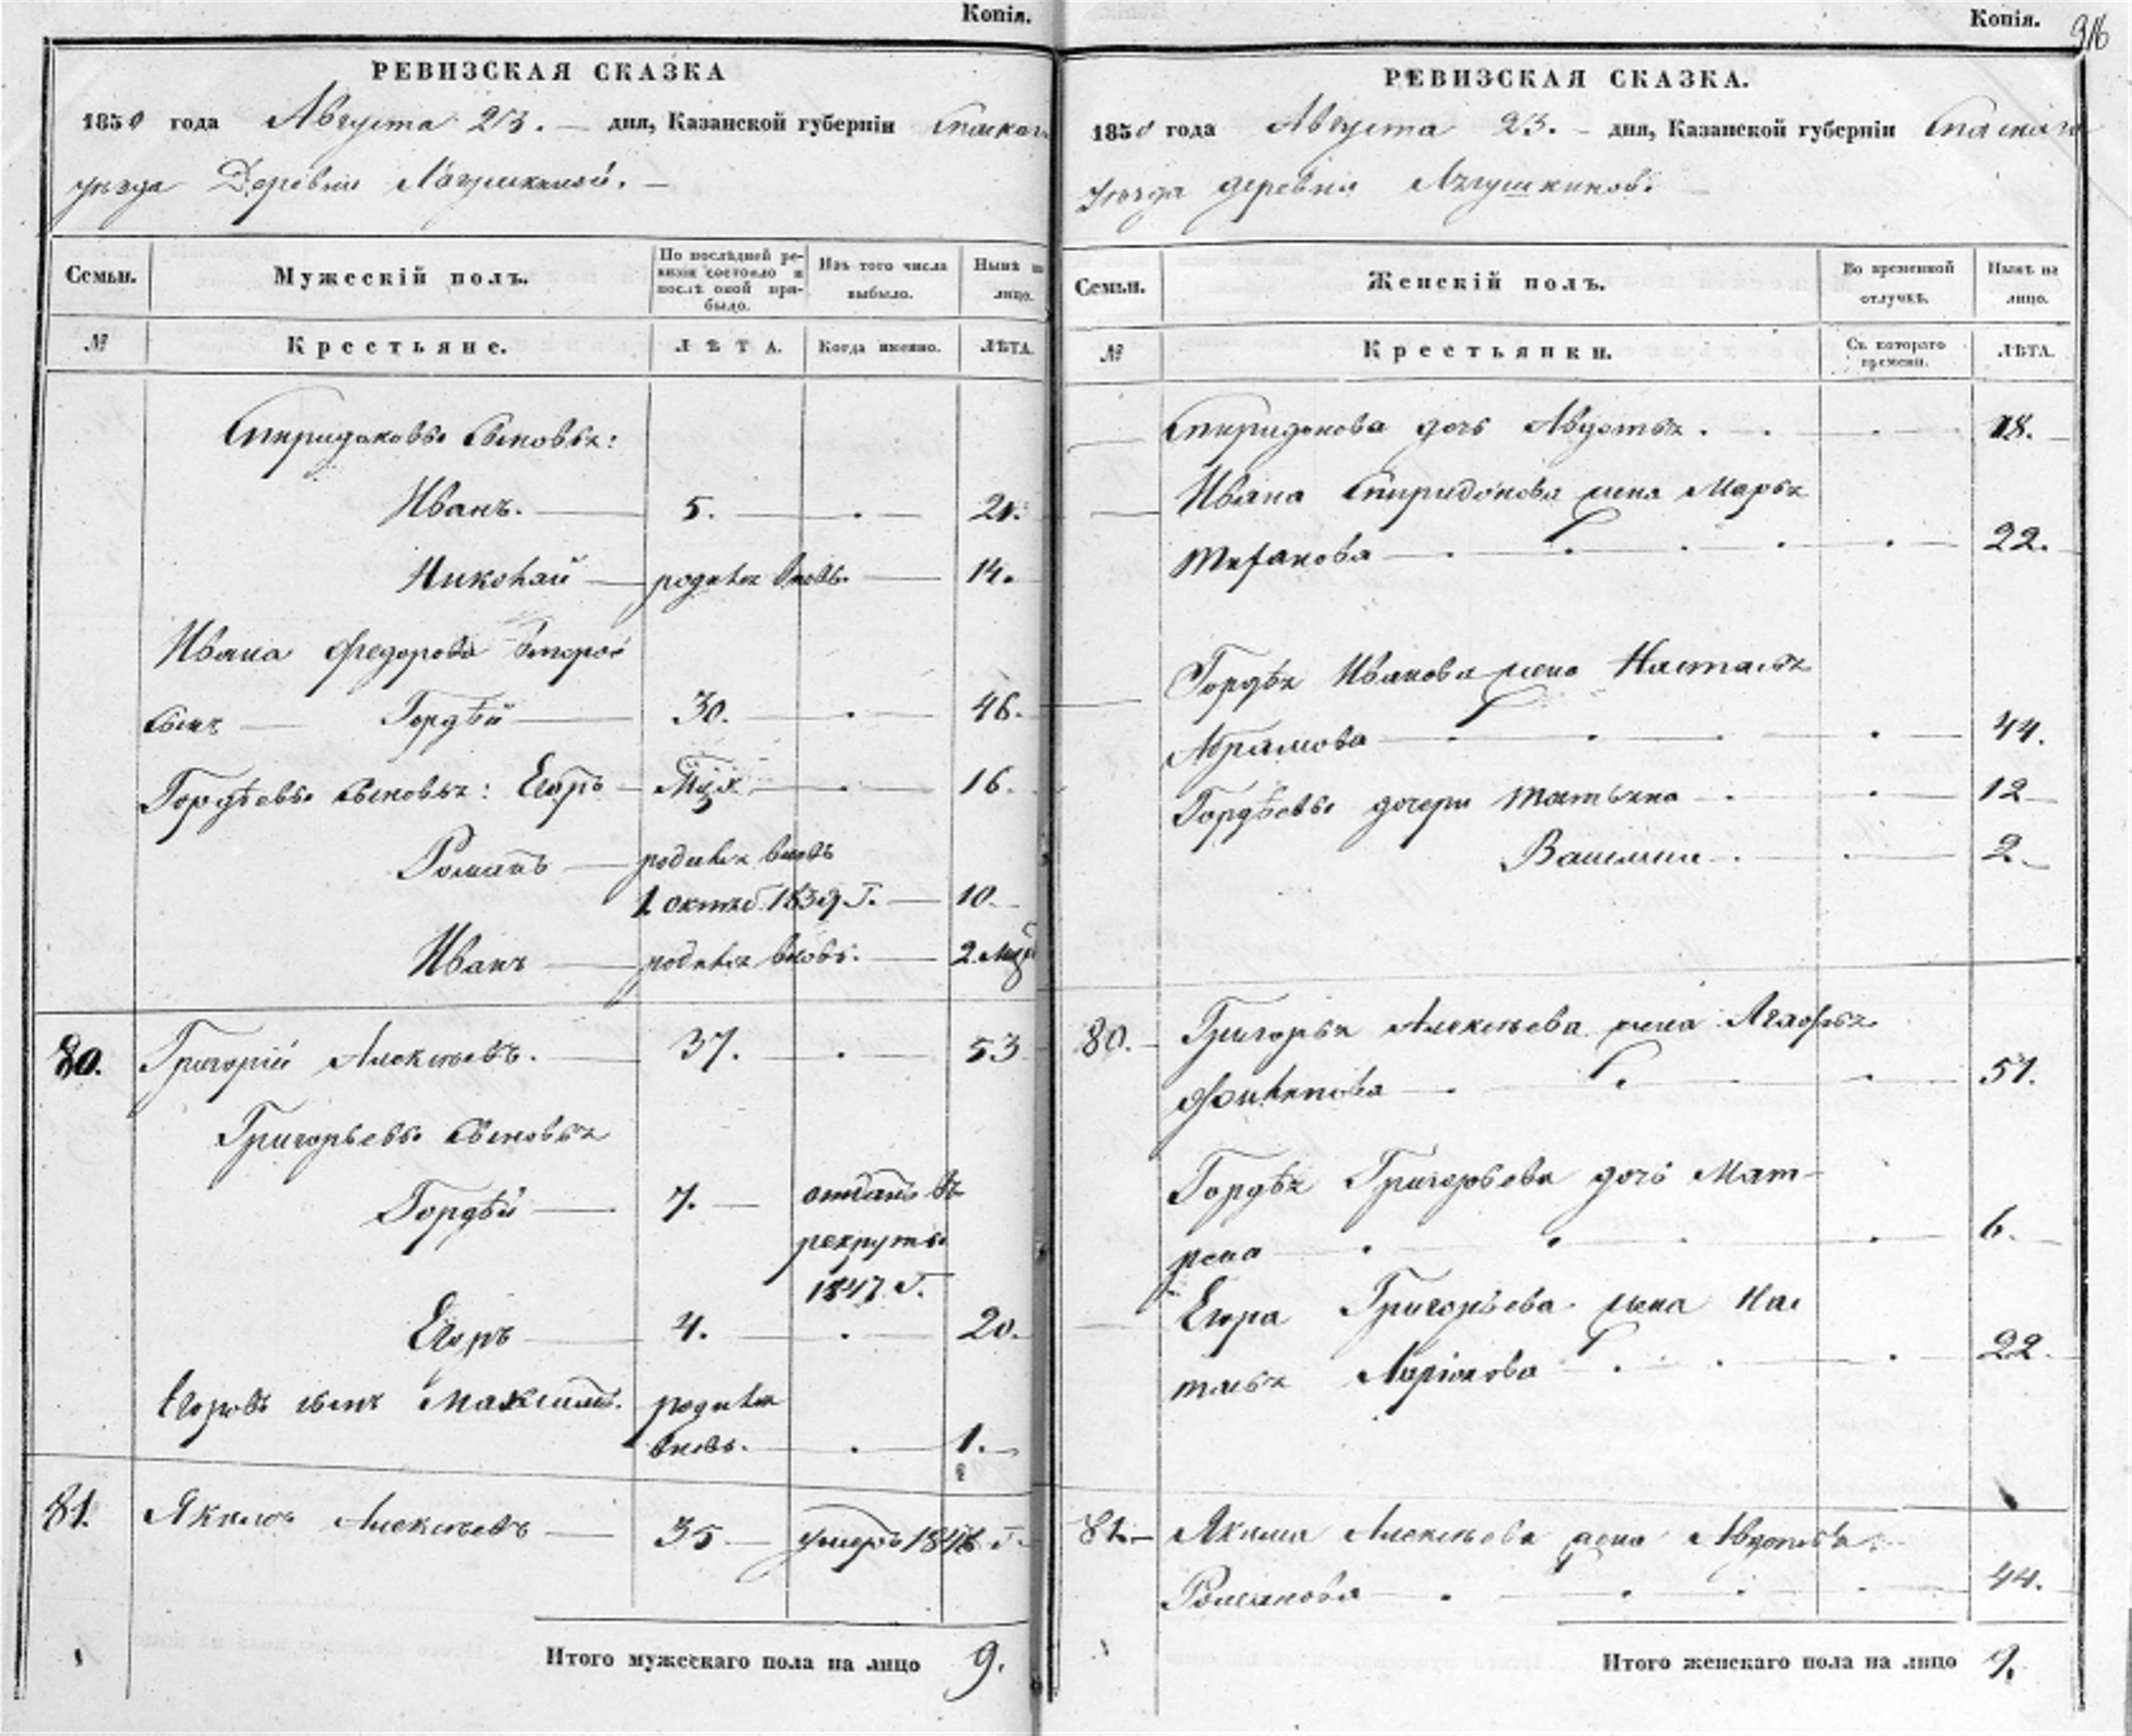 Копія.
РЕВИЗСКАЯ СКАЗКА
1850 года Августа 23. дня, Казанской губерніи Спаскаго
уѣзда Деревни
Семьи.
Мужескій полъ.
По послѣдней ре-
визіи состояло и
послѣ оной при-
было.
Изъ того числа
выбыло.
Нынѣ на
лицо.
№
Крестьяне.
ЛѢТА.
Когда именно.
ЛѢТА.
Спиридоновы сыновья:
Иванъ. 5. 21.
Николай родился вновь. 14.
Ивана Федорова второй
сынъ Гордѣй 30. 46.
Гордѣевы сыновья: Егоръ 16.
Романъ родился вновь
1 октяб. 1839 г. 10.
Иванъ родился вновь. 2 мѣс
80. Григорій Алексѣевъ. 37. 53
Григорьевы сыновья
Гордѣй 7. отданъ въ
рекруты
1847 г.
Егоръ 4. 20.
Егоровъ сынъ Максимъ. родился
вновь. 1.
81. Якимъ Алексѣевъ 35 умеръ г.
Итого мужескаго пола на лицо 9.
Копія.
916
РЕВИЗСКАЯ СКАЗКА.
1850 года Августа 23. дня, Казанской губерніи Спаскаго
уѣзда деревни
Семьи.
Женскій полъ.
Во временной
отлучкѣ.
Нынѣ на
лицо.
№
Крестьянки.
Съ котораго
времени.
ЛѢТА.
Спиридонова дочь Авдотья. 18.
Ивана Спиридонова жена Марья
22.
Гордѣя Иванова жена Наталья
Абрамова 44.
Гордѣевы дочери Татьяна 12
2.
80. Григорья Алексѣева жена Агафья
Филипова 51.
Гордѣя Григорьева дочь Мат-
рена 6.
Егора Григорьева жена На-
талья Ларіонова 22.
81. Якима Алексѣева жена Авдотья
Романова 44.
Итого женскаго пола на лицо 9.